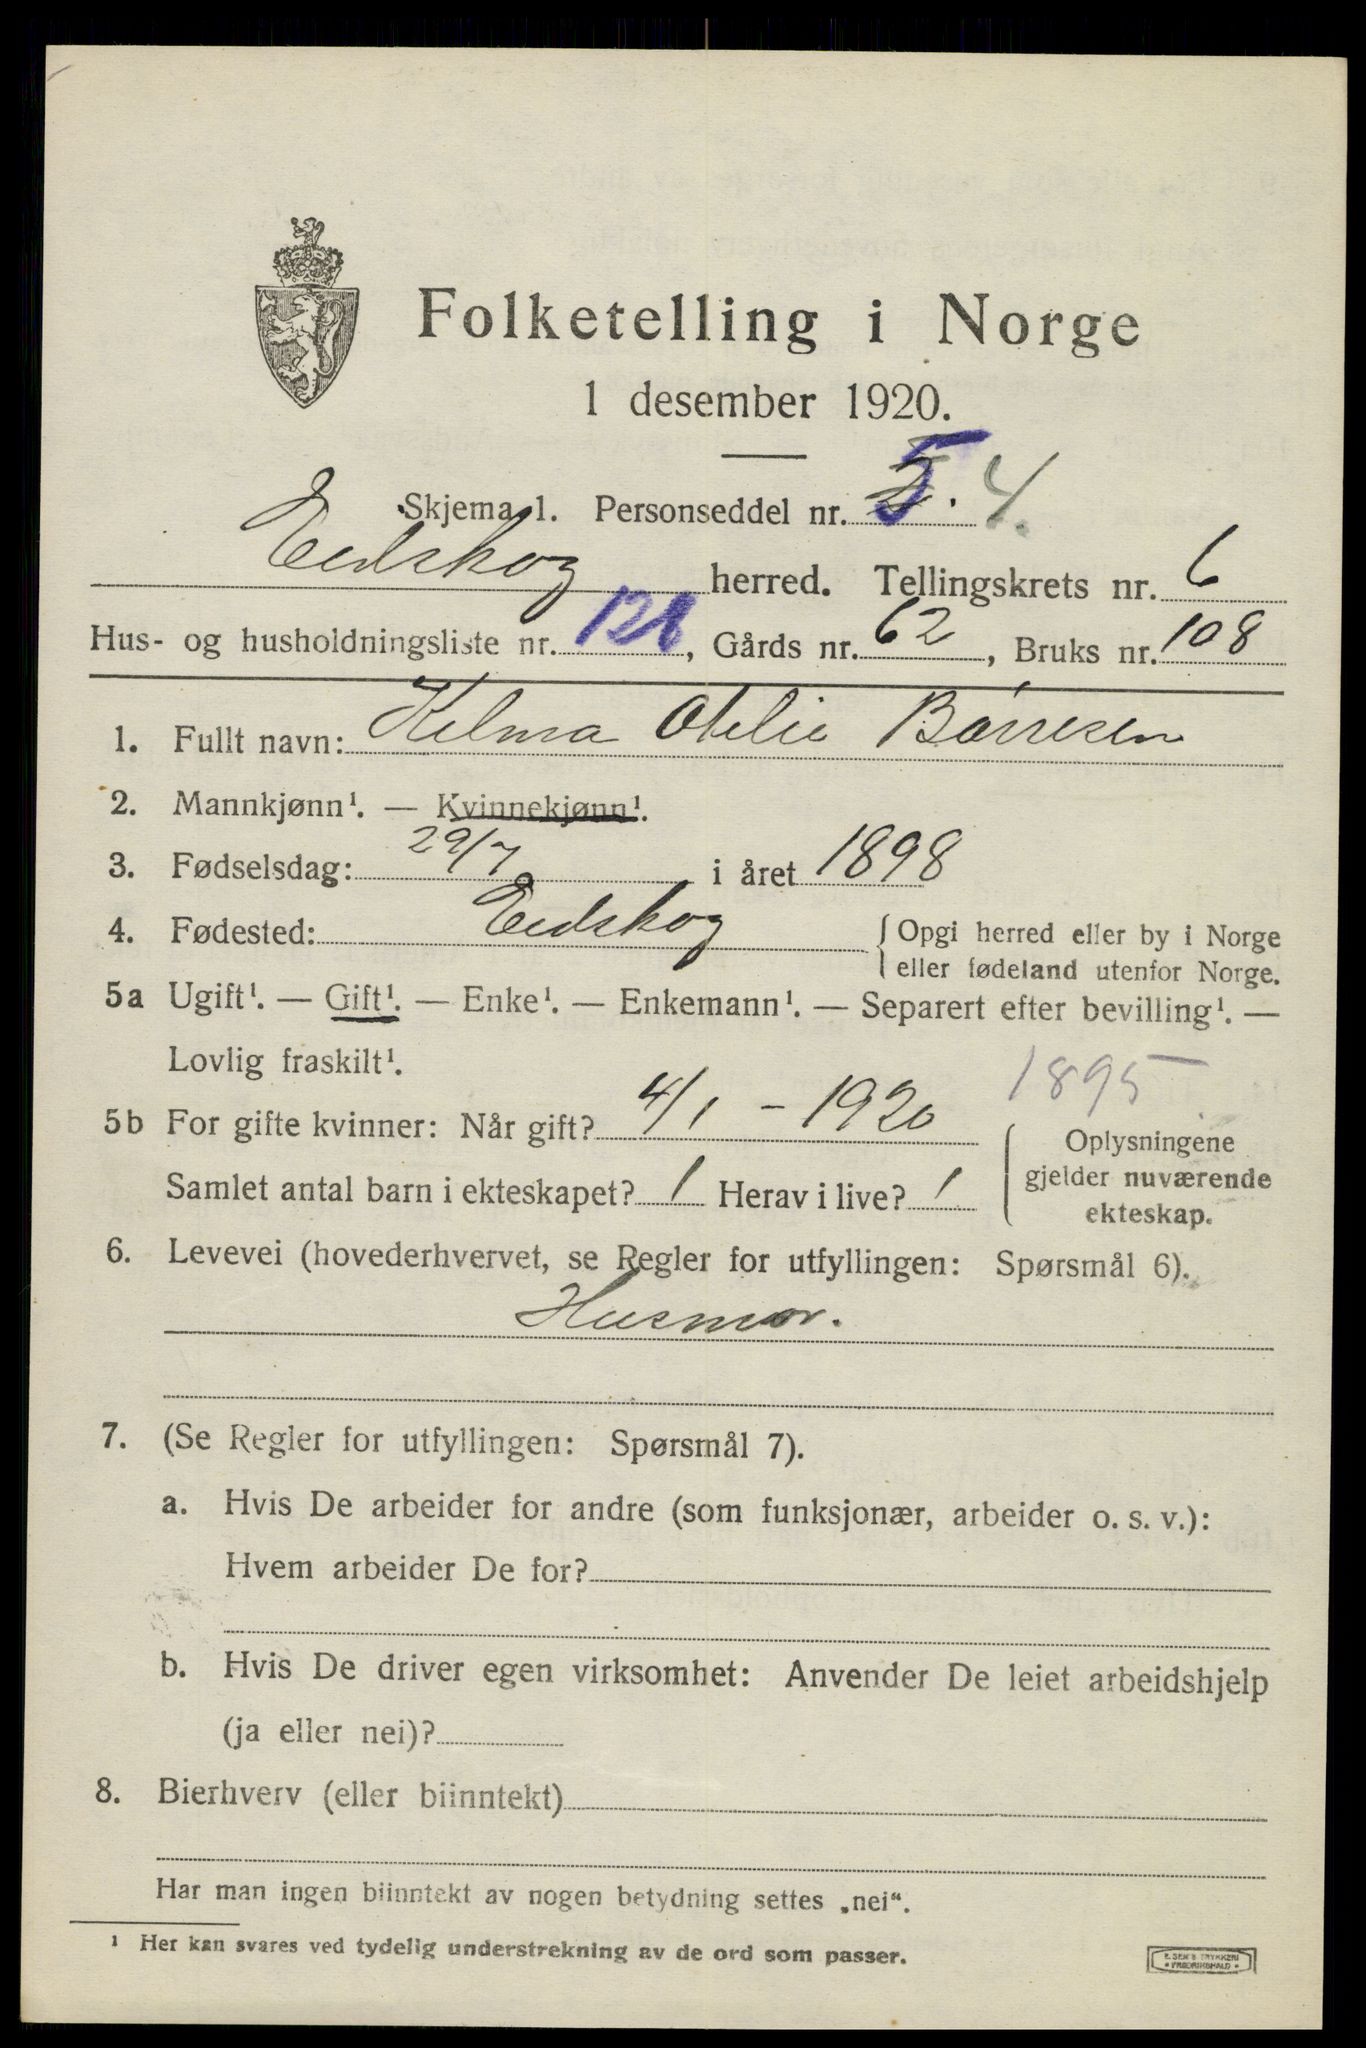 Folketelling i Norge
1 desember 1920.
Skjema 1. Personseddel nr. 5. 4.
Eidskog herred. Tellingskrets nr. 6
Hus- og husholdningsliste nr. 128, Gårds nr. 62, Bruks nr. 108
1. Fullt navn: Helma Otelie Børresen
2. Mannkjønn¹. — Kvinnekjønn¹.
3. Fødselsdag: 29/7 i året 1898
4. Fødested: Eidskog { Opgi herred eller by i Norge
eller fødeland utenfor Norge.
5a Ugift¹. — Gift¹. — Enke¹. — Enkemann¹. — Separert efter bevilling¹. —
Lovlig fraskilt¹.
1895
5b For gifte kvinner: Når gift? 4/1 - 1920
Samlet antal barn i ekteskapet? 1 Herav i live? 1
Oplysningene
gjelder nuværende
ekteskap.
6. Levevei (hovederhvervet, se Regler for utfyllingen: Spørsmål 6).
Husmor.
7. (Se Regler for utfyllingen: Spørsmål 7).
a. Hvis De arbeider for andre (som funksjonær, arbeider o. s. v.):
Hvem arbeider De for?
b. Hvis De driver egen virksomhet: Anvender De leiet arbeidshjelp
(ja eller nei)?
8. Bierhverv (eller biinntekt)
Har man ingen biinntekt av nogen betydning settes „nei“.
¹ Her kan svares ved tydelig understrekning av de ord som passer.
E. SEM'S TRYKKERI
• FREDRIKSHALD •